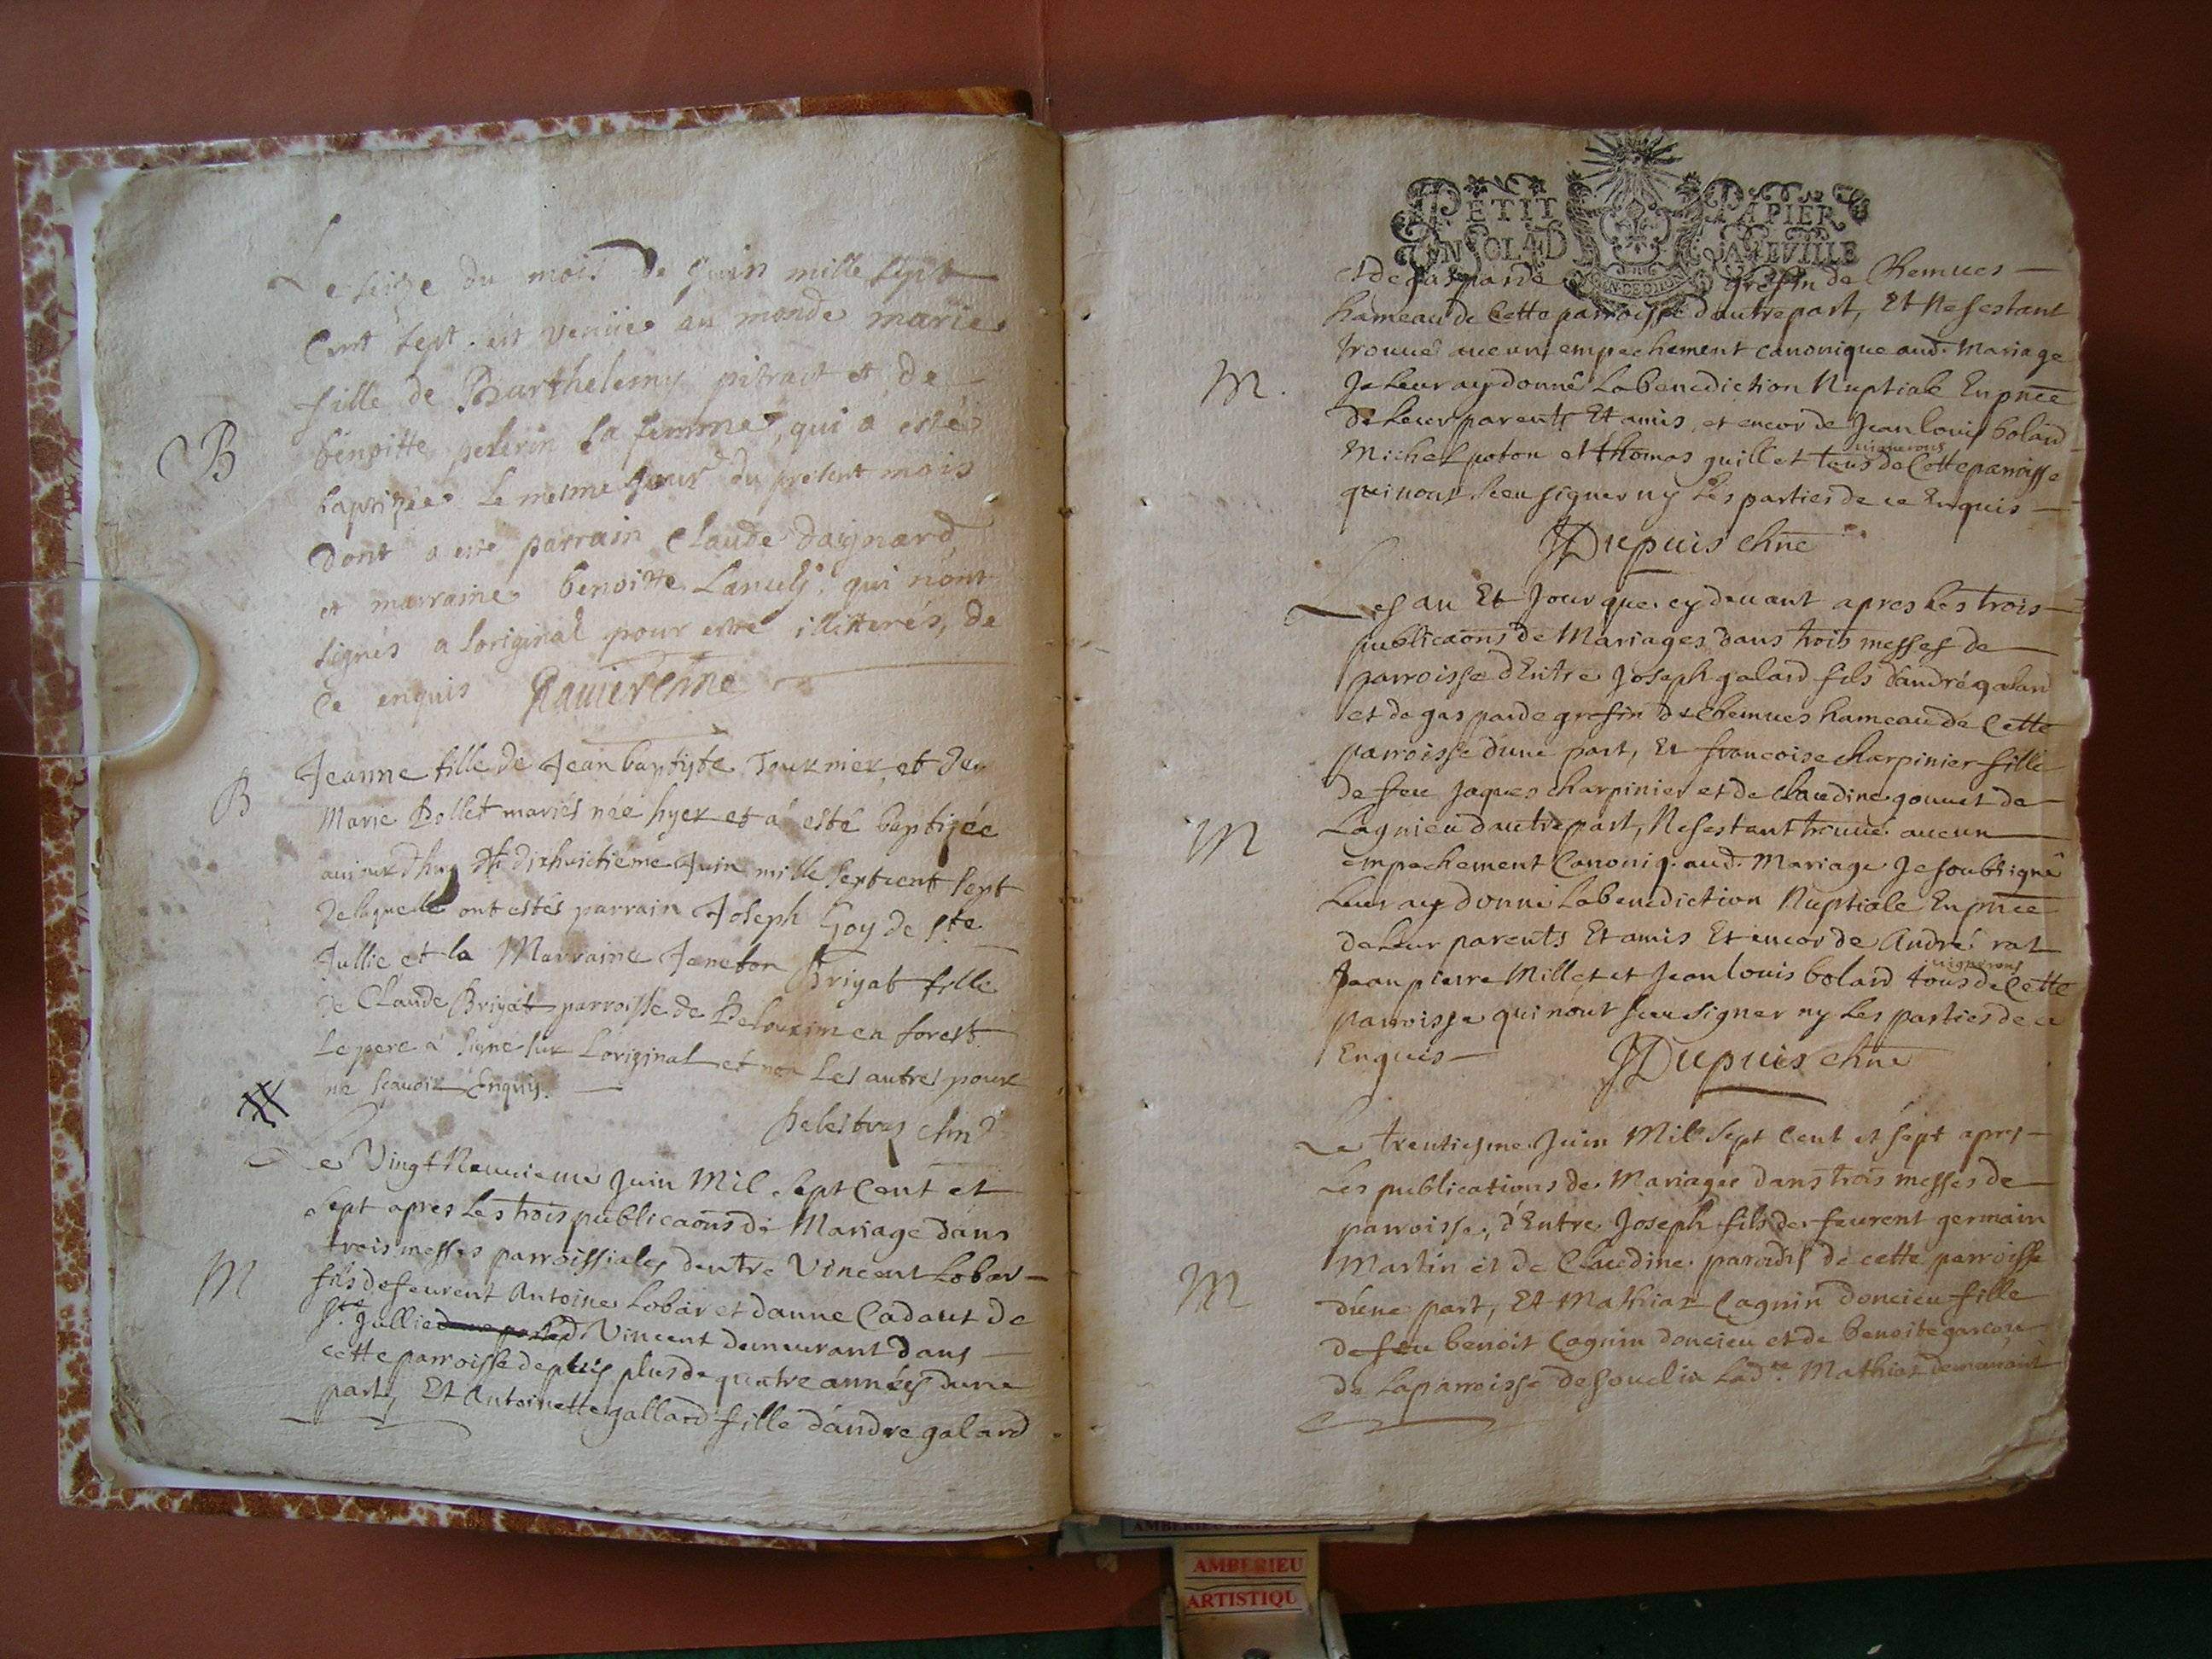 Le seize du mois de Juin mille sept
Cent sept est veniie au monde marie
fille de Barthelemy pitrat et de
B
benoitte pelerin sa femme, qui a esté
baptizée le mesme jour du present mois
dont a esté parrain Claude daignard
et marraine benoitte qui nont
signés a loriginal pour estre illitterés, de
ce enquis Ravier chne
Jeanne fille de Jean baptiste Tournier et de
B
Marie Bollet mariés née hyer et a esté baptizée
aujourdhuy dixhuictieme Juin mille septcent sept
de laquelle ont estés parrain Joseph Goy de ste
Jullie et la Marraine Janeton Brigat fille
de Claude Brigat parroisse de en forest
Le pere a signé sur Loriginal et non Les autres pour
ne scavoir Enquis.
Delestras chne
Le Vingt Neuvieme Juin Mil Sept Cent et
Sept apres Les trois publicaons de Mariage dans
trois messes parroissiales dentre Vincent Lobar
M
fils de feurent Antoine Lobar et danne Cadaut de
Ste Jullie d. Vincent demeurant dans
cette parroisse depuis plus de quatre années dune
part, Et Antoinette gallard fille dandre galard
PETIT PAPIER
UN SOL 4 D LA FEVILLE
et de gasparde grefin de Chemues
hameau de Cette parroisse dautre part, Et Ne sestant
trouvé aucun empechement canonique aud. Mariage
M.
Je Leur ay donné La benediction Nuptiale En pnce
de Leur parents Et amis, et encor de Jean louis bolard
vignerons
Michel poton et thomas guillet tous de Cette parroisse
qui nont sceu signer ny Les parties de ce Enquis
JDupuis chne
Les an Et Jour que cy devant apres les trois
publicaons de Mariages dans trois messes de
parroisse dEntre Joseph galard fils dandré galard
et de gasparde grefin de Chemues hameau de Cette
parroisse dune part, Et francoise charpinier fille
de feu Jaques charpinier et de Claudine gouvet de
M
Lagnieu dautre part, Ne sestant trouvé aucun
empechement Canoniq. aud. Mariage Je soubsigné
Leur ay donné La benediction Nuptiale En pnce
de Leur parents Et amis Et encor de André rat
vignerons
Jean pierre Millet et Jean louis bolard tous de Cette
parroisse qui nont sceu signer ny Les parties de ce
Enquis JDupuis chne
Le trentiesme Juin Mil Sept Cent et sept apres
Les publications de Mariages dans trois messes de
parroisse, d'Entre Joseph fils de feurent germain
Martin et de Claudine paradis de cette parroisse
M
dune part, Et Mathiaz Cagnin doncieu fille
de feu benoit Cagnin doncieu et de Benoite garcon
de La parroisse de Souclin Lad.te Mathiaz demeurant
AMBERIEU
ARTISTIQU